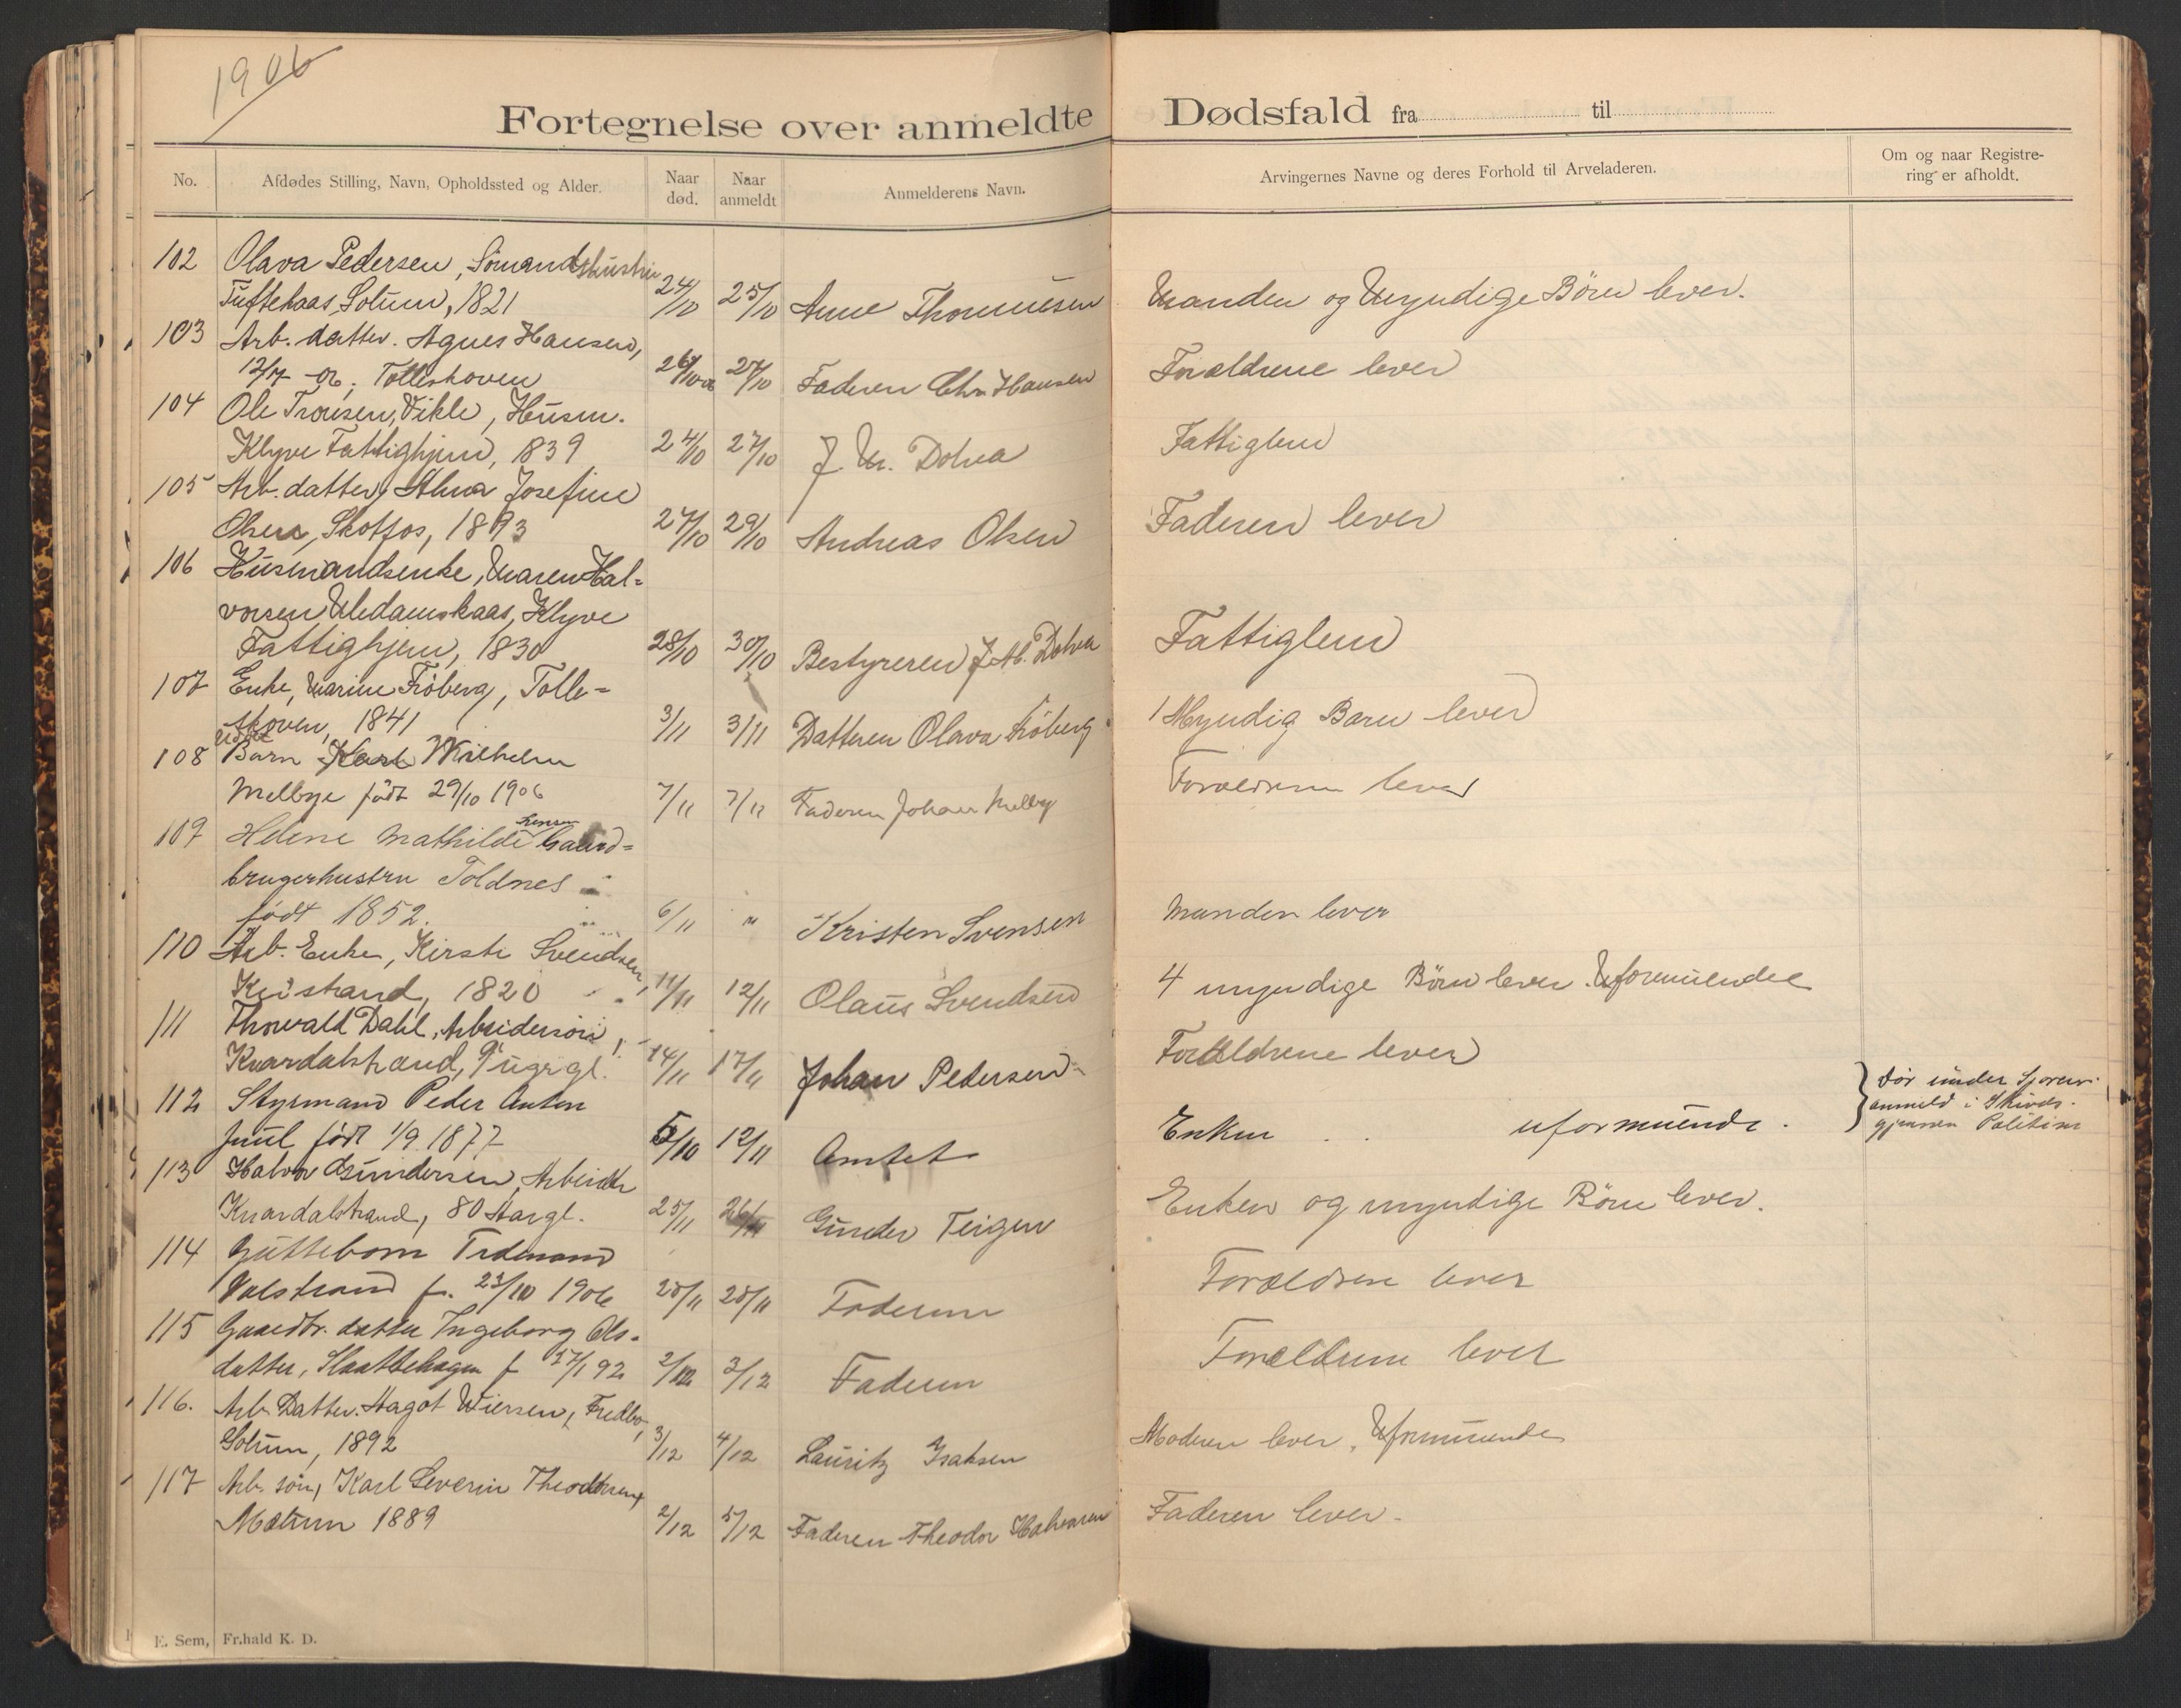 1906
Fortegnelse over anmeldte Dødsfald fra til
No.
Afdødes Stilling, Navn, Opholdssted og Alder.
Naar død.
Naar anmeldt
Anmelderens Navn.
Arvingernes Navne og deres Forhold til Arveladeren.
Om og naar Registre-
ring er afholdt.
102 Olava Pedersen, Sömandshustru
Tuftekaas, Solum, 1821 24/10 25/10 Anne Thommesen Manden og Myndige Börn lever.
103 Arb. datter. Agnes Hansen,
12/7 - 06. Tolleskoven 26/10 06 27/10 Faderen Chr. Hansen Forældrene lever
104 Ole Tronsen, Vikle, Husm.
Klyve Fattighjem, 1839 24/10 27/10 J. M. Dolva Fattiglem
105 Arb. datter, Alma Josefine
Olsen, Skotfos, 1893 27/10 29/10 Andreas Olsen Faderen lever
106 Husmandsenke, Maren Hal-
vorsen Meldamskaas, Klyve
Fattighjem, 1830 28/10 30/10 Bestyreren J. M. Dolva Fattiglem
107 Enke, Marine Fröberg, Tolle-
skoven, 1841 3/11 3/11 Datteren Olava Fröberg 1 Myndig Barn lever
108 Barn Karl Wilhelm
Melbye födt 29/10 1906 7/11 7/11 Faderen Johan Melby Forældrene lever
109 Helene Mathilde Gaard-
brugerhustru Toldnes
födt 1852. 6/11 " Kristen Svensen Manden lever
110 Arb. Enke, Kirsti Svendsen,
1820 11/11 12/11 Olaus Svendsen 4 myndige Börn lever. Uformuende
111 Thorvald Dahl, Arbeidersön,
Knardalstrand, 9 ugergl. 14/11 17/11 Johan Pedersen Forældrene lever
112 Styrmand Peder Anton
Juul födt 1/9 1877 5/10 12/11 Amtet Enken . . uformuende. } Dör under
anmeld i
Politim
113 Halvor Gundersen, Arbeider
Knardalstrand, 80 Aargl. 25/11 26/11 Gunder Teigen Enken og myndige Börn lever.
114 Guttebarn Ferdinand
Valstrand f. 23/10 1906 25/11 25/11 Faderen Forældrene lever
115 Gaardbr. datter Ingeborg Ols-
datter, Slaattehagen f 27/1 92 2/12 3/12 Faderen Forældrene lever
116. Arb. Datter. Aagot Wiersen, Fredbo,
Solum, 1892 3/12 4/12 Lauritz Isaksen Moderen lever, Uformuende
117 Arb. sön, Karl Severin Theodorsen,
Mælum 1889 2/12 5/12 Faderen Theodor Halvorsen Faderen lever.
E. Sem, Fr.hald K. D.